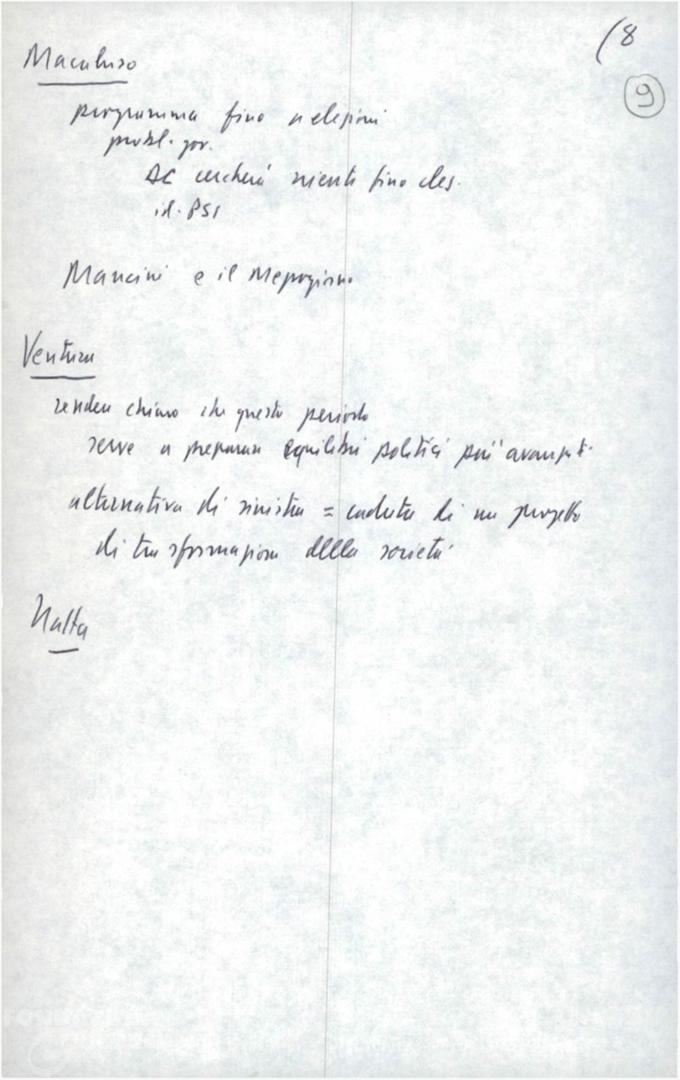 (8
9
Macaluso
programma fino a elezioni
probl. gov.
DC cercherà niente fino elez.
id. PSI
Mancini e il Mezzogiorno
Ventura
rendere chiaro che questo periodo
serve a preparare equilibri politici più avanzati
alternativa di sinistra = caduta di un progetto
di trasformazione della società
Natta